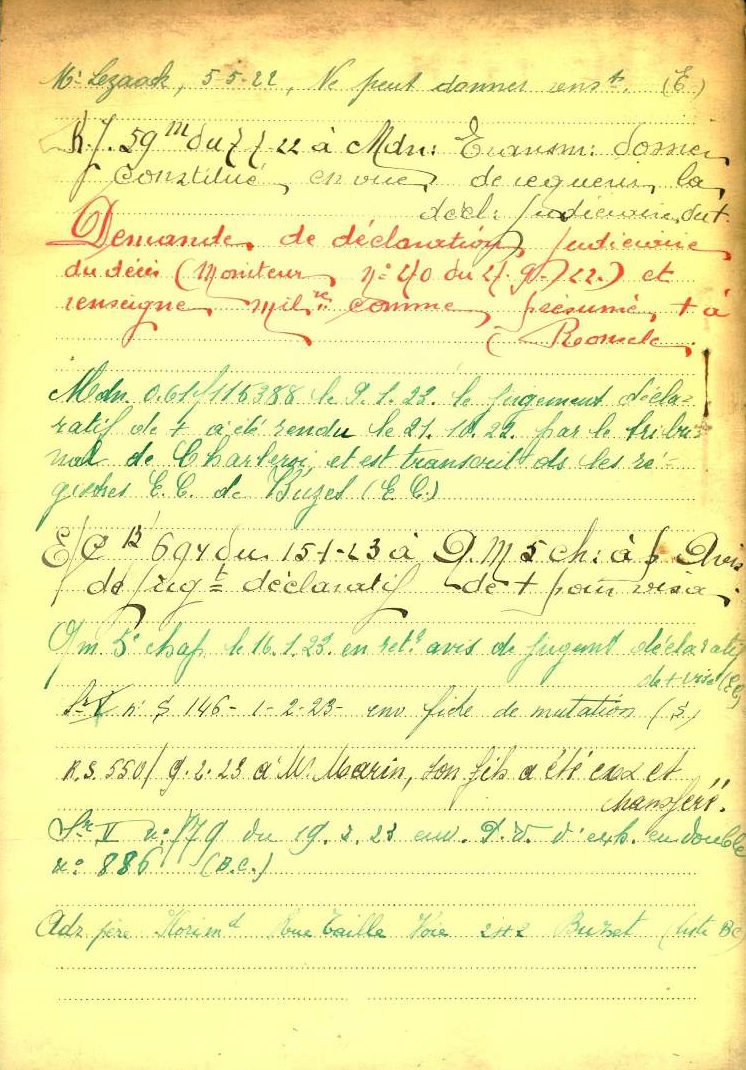 Mr Lezaack, 5-5-22, Ne peut donner renst. (E)
K.J. 59 m du 7 7 22 à Mdn: Transm: dossier
constitué, en vue, de requérir, la,
décl: judiciaire, du +
Demande, de déclaration, judiciaire
du décès (Moniteur, n° 270 du 27.9.22.) et
renseigne, milre comme, présumé, + à
( Romele.
Mdn 0.61/116388 le 9.1.23. le jugement décla-
ratif de + a été rendu le 21.10.22. par le tribu-
nal de Charleroi, et est transcrit ds les re-
gistres E.C. de Buzet (E.C.)
E/C 13 694 du 15-1-23 à Q.M 5 ch: à p Avis
de jugt déclaratif de + pour visa.
Q m 5e chap. le 16.1.23. en ret. avis de jugemt déclaratif
de + visé (EC)
n° S 146- 1-2-23- env fiche de mutation (S)
R.S. 550/ 9.2.23 à Mr. Marin, son fils a été ex et
transféré.
Sr II n° 179 du 19.2.23 env. P.V. d'exh. en double
n° 886 (D.C.)
Adr père Florimd Rue Taille Voie 242 Buzet (liste BC)